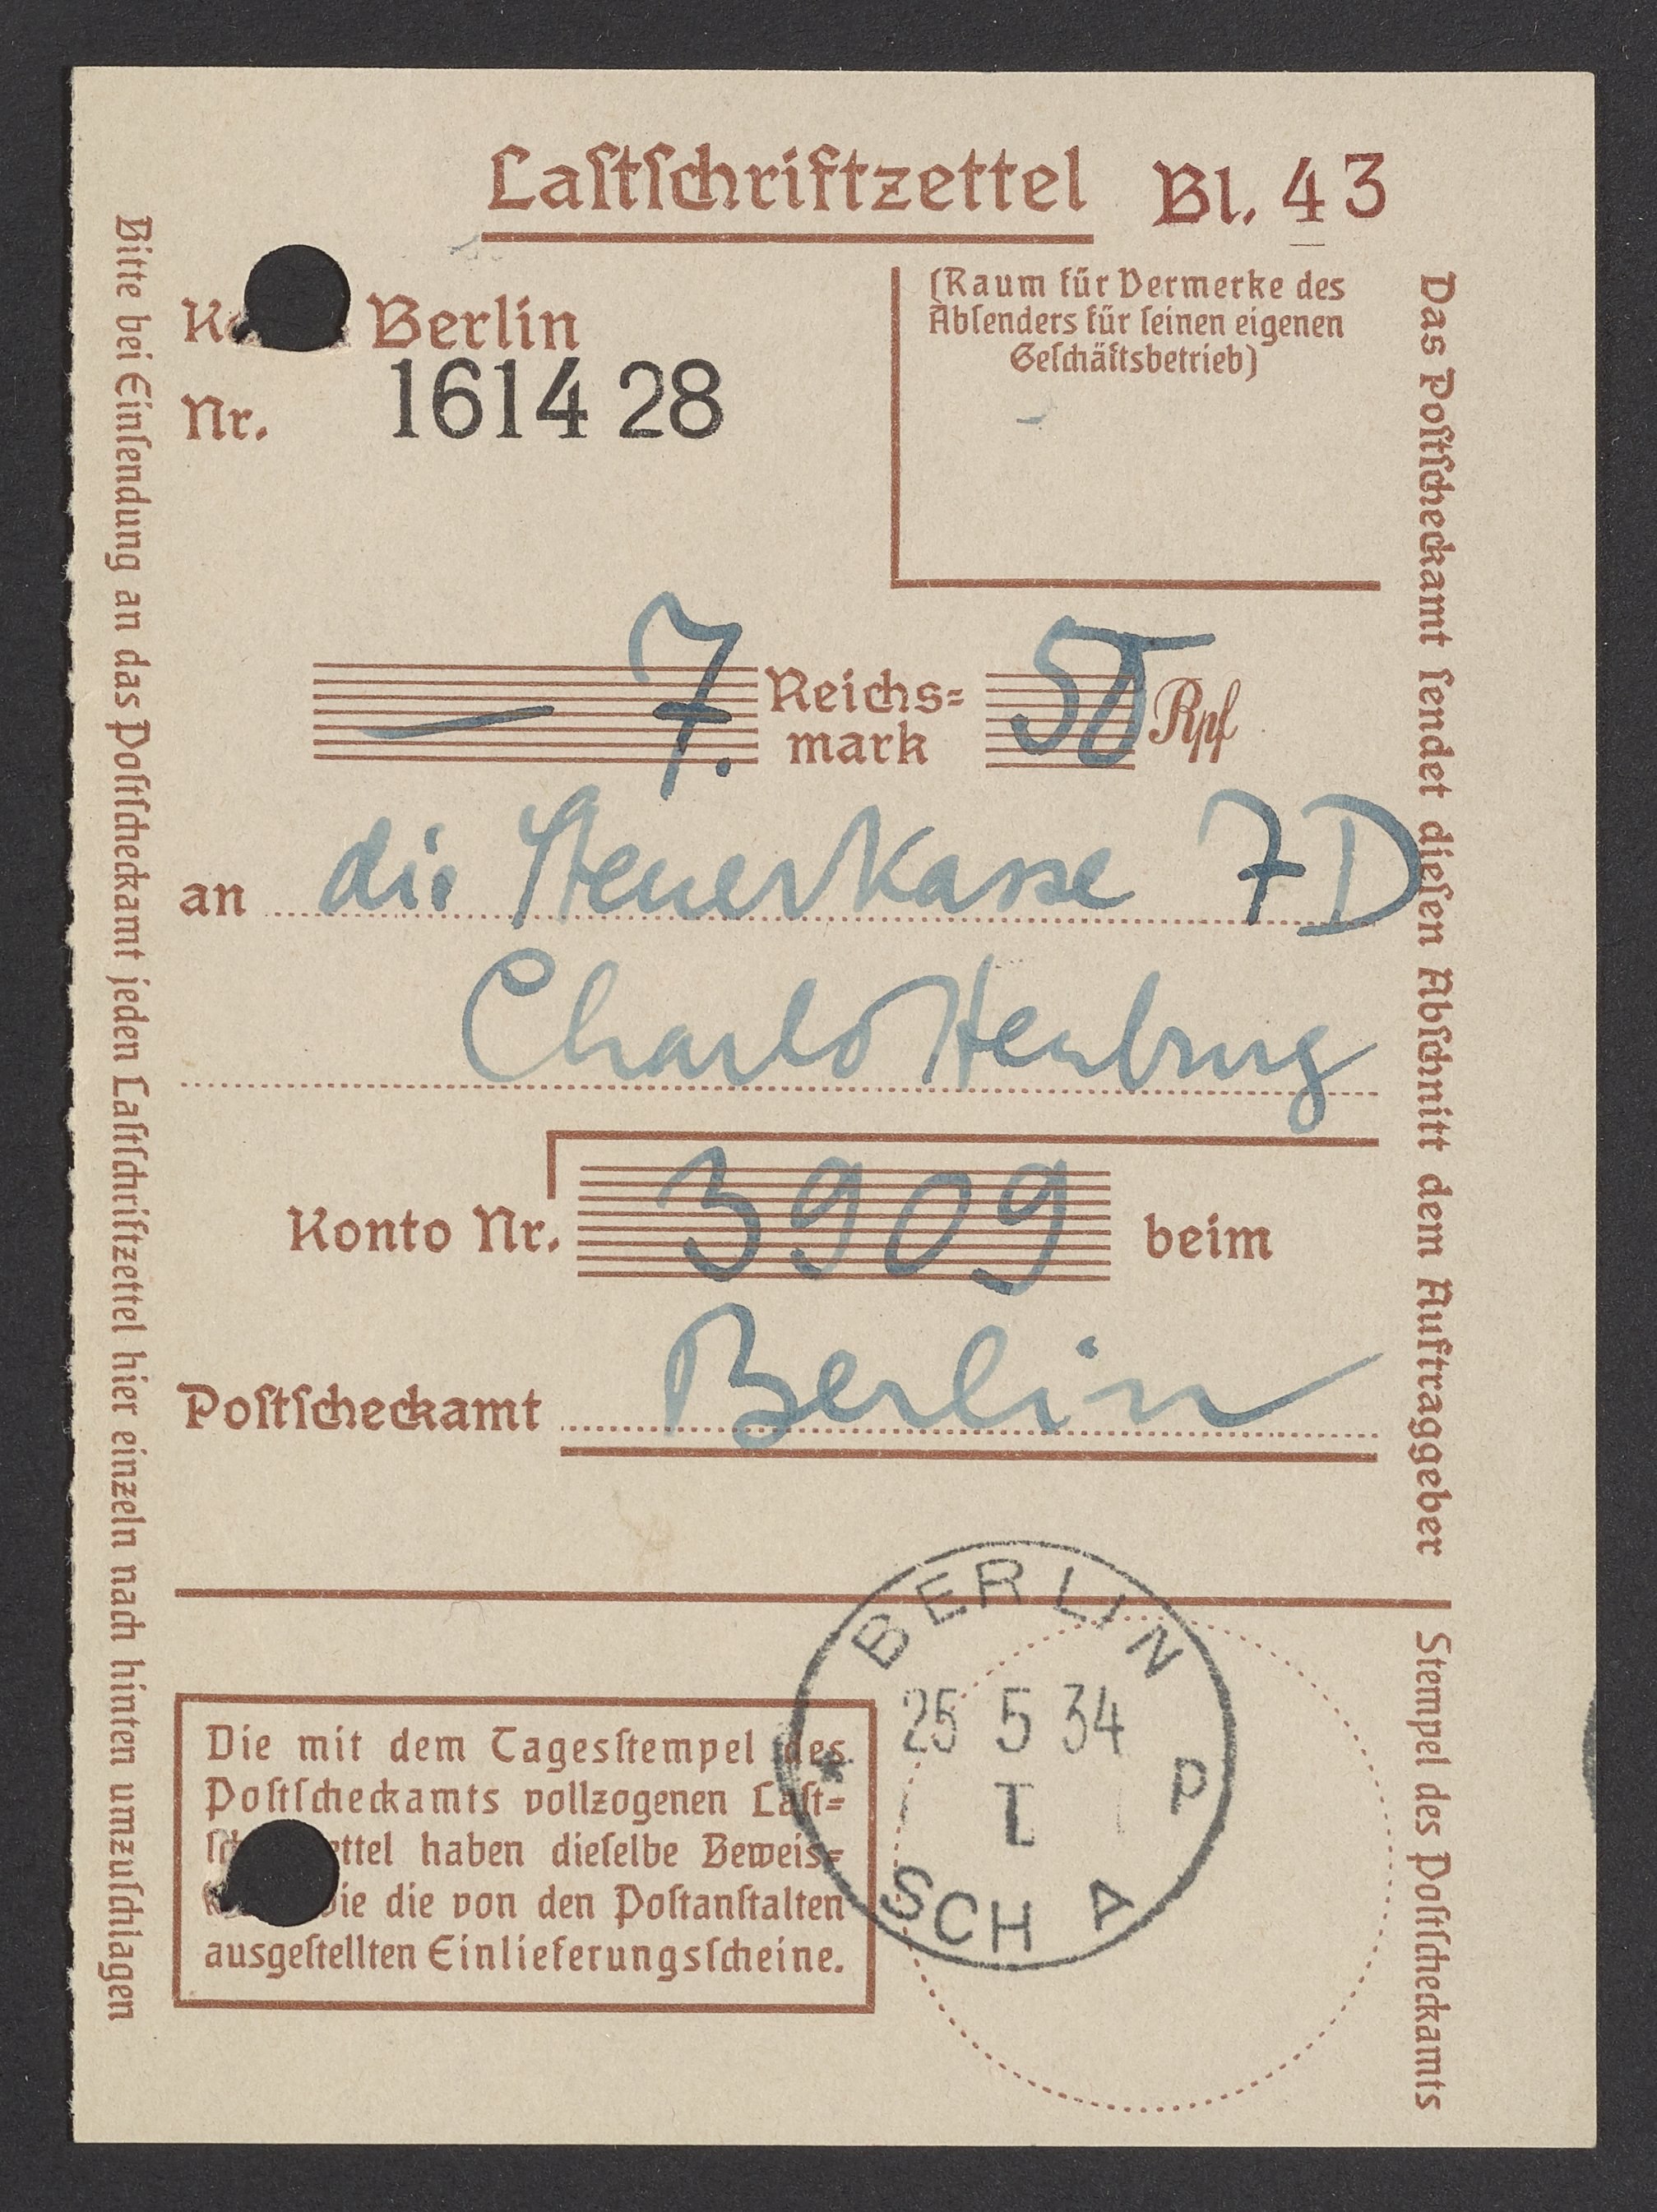 Lastschriftzettel Bl. 43
Berlin
Nr. 1614 28
(Raum für Vermerke des
Absenders für seinen eigenen
Geschäftsbetrieb)
— 7. Reichs=
mark 50 Rpf
an die Steuerkasse 7D
Charlottenburg
Konto Nr. 3909 beim
Postscheckamt Berlin
Die mit dem Tagesstempel des
Postscheckamts vollzogenen Last=
ettel haben dieselbe Beweis=
die von den Postanstalten
ausgestellten Einlieferungsscheine.
BERLIN
25 5 34
P
SCH A
Bitte bei Einsendung an das Postscheckamt jeden Lastschriftzettel hier einzeln nach hinten umzuschlagen
Das Postscheckamt sendet diesen Abschnitt dem Auftraggeber
Stempel des Postscheckamts